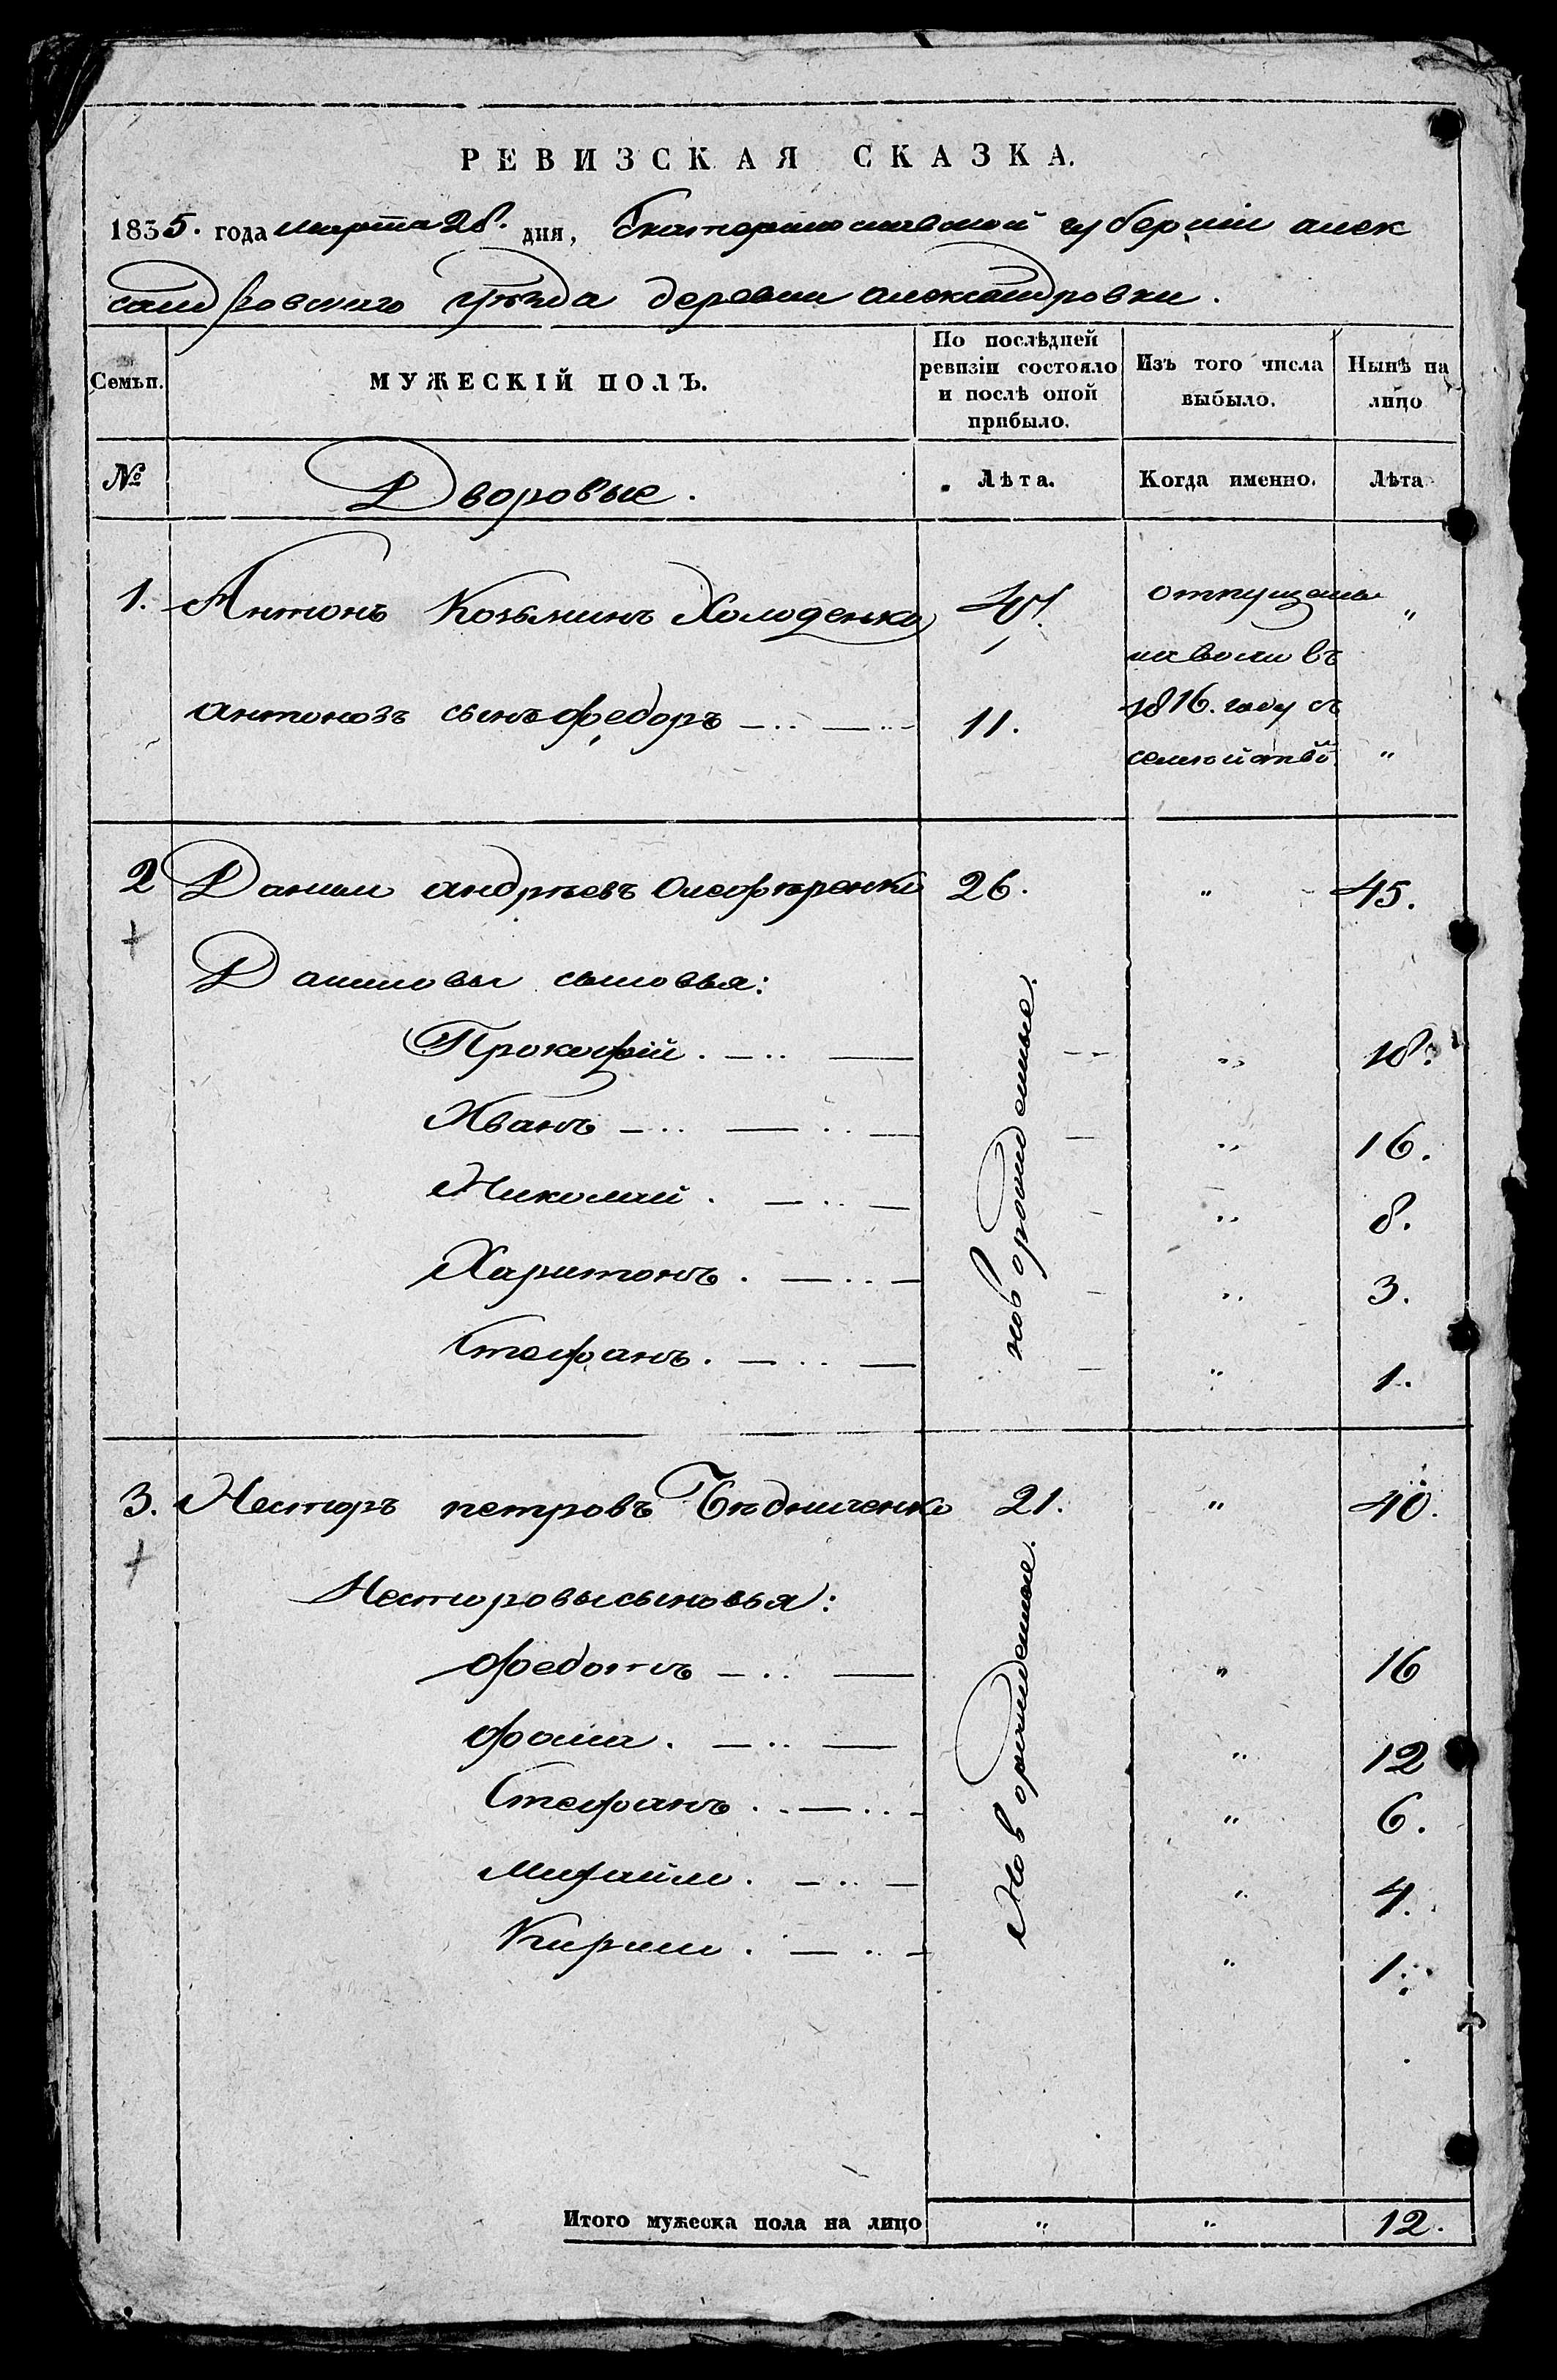 РЕВИЗСКАЯ СКАЗКА.
1835. года марта 28. дня, Екатеринославской губерніи алек
сандровского уѣзда деревни александровки.
Семьи. МУЖЕСКІЙ ПОЛЪ. По послѣдней ревизіи состояло и послѣ оной прибыло. Изъ того числа выбыло. Нынѣ на лицо
№ Дворовые. Лѣта. Когда именно. Лѣта
1. Антонъ Козьминъ Холоденко отпущены "
на волю въ
антоновъ сынъ федоръ 11. 1816. году съ
семейств "
2 Данило андрѣевъ 26. " 45.
Даниловы сыновья:
новорожденные.
Прокофій. " 18.
Иванъ " 16.
Николай. " 8.
Харитонъ. " 3.
Стефанъ. " 1.
3. Несторъ петровъ Бѣдниченко 21. " 40.
Несторовы сыновья:
Новорожденные.
федотъ " 16
фома. " 12
Стефанъ. " 6.
Михайло. " 4.
Кирило. " 1.
Итого мужеска пола на лицо " " 12.